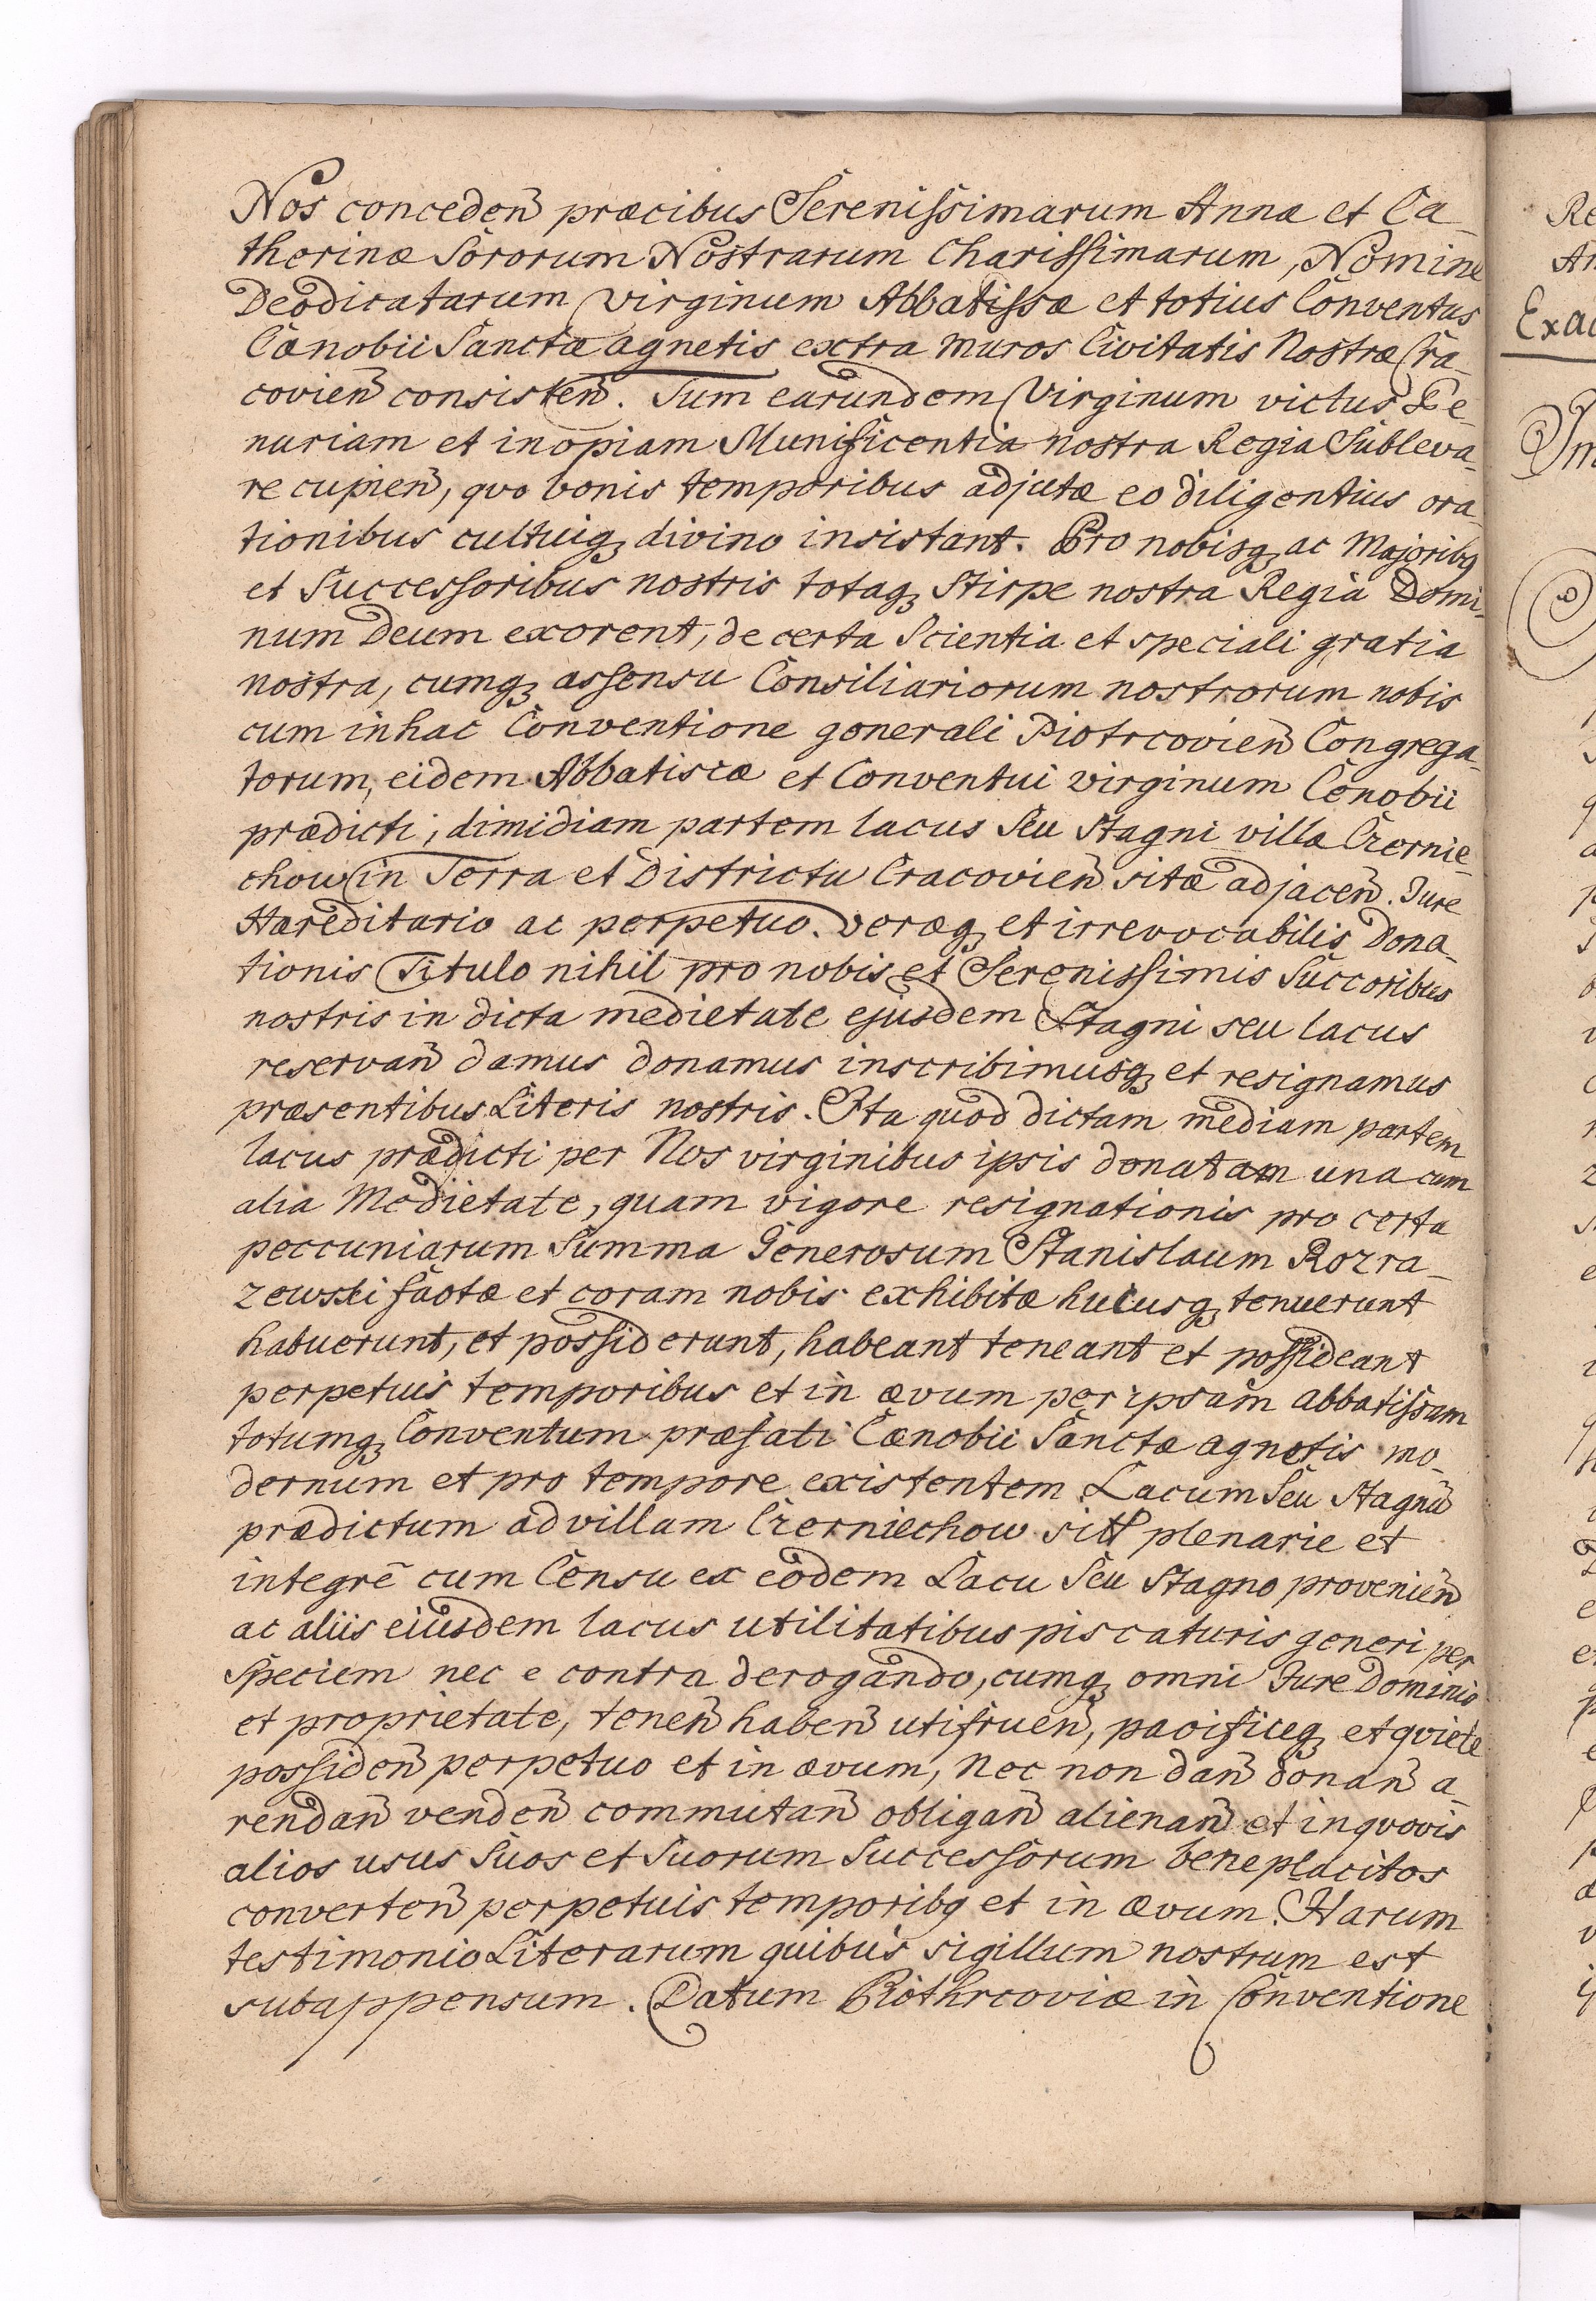 Nos conceden̄ præcibus Serenissimarum Annæ et Ca-
therinæ Sororum Nostrarum Charissimarum, Nomine
Deodicatarum Virginum Abbatissæ et totius Conventus
Cænobii Sanctæ agnetis extra muros Civitatis Nostræ Cra-
covien̄ consisten̄. Tum earundem Virginum victus Pe-
nuriam et inopiam Munificentia nostra Regia Subleva-
re cupien̄, qvo bonis temporibus adjutæ eo diligentius ora-
tionibus cultuiq́ʒ divino insistant. Pro nobisqʒ ac Majoribꝫ
et Successoribus nostris totaqʒ Stirpe nostra Regia Domi-
num Deum exorent, de certa Scientia et speciali gratia
nostra, cumqʒ assensu Consiliariorum nostrorum nobis
cum in hac Conventione generali Piotrcovien̄ Congrega-
torum, eidem Abbatiscæ et Conventui virginum Cenobii
prædicti, dimidiam partem lacus Seu Stagni villæ Czernie-
chow in Terra et Districtu Cracovien̄ sitæ adjacen̄. Jure
Hæreditario ac perpetuo. veræqʒ et irrevocabilis Dona-
tionis Titulo nihil pro nobis et Serenissimis Succoribus
nostris in dicta medietate ejusdem Stagni seu lacus
reservan̄ damus donamus inscribimusqʒ et resignamus
præsentibus Literis nostris. Ita quod dictam mediam partem
lacus prædicti per Nos virginibus ipsis donatam una cum
alia Medietate, quam vigore resignationis pro certa
peccuniarum Summa Generosum Stanislaum Rozra-
zewski factæ et coram nobis exhibitæ hucusqʒ tenuerunt
habuerunt, et possiderunt, habeant teneant et possideant
perpetuis temporibus et in ævum per ipsam abbatissam
totumqʒ Conventum præfati Cænobii Sanctæ agnetis mo-
dernum et pro tempore existentem Lacum Seu Stagnū
prædictum ad villam Czerniechow sit plenarie et
integrē cum Censu ex eodem Lacu Seu Stagno provenien̄
ac aliis eiusdem lacus utilitatibus piscaturis generi per
Speciem nec e contra derogando, cumqʒ omni Jure Dominio
et proprietate, tenen̄ haben̄ utifruen̄, pacificeqʒ et qviete
possiden̄ perpetuo et in ævum, Nec non dan̄ donan̄ a-
rendan̄ venden̄ commutan̄ obligan̄ alienan̄ et in qvovis
alios usus Suos et Suorum Successorum beneplacitos
converten̄ perpetuis temporibꝫ et in ævum. Harum
testimonio Literarum quibus sigillum nostrum est
subappensum. Datum Piothrcoviæ in Conventione
Exac